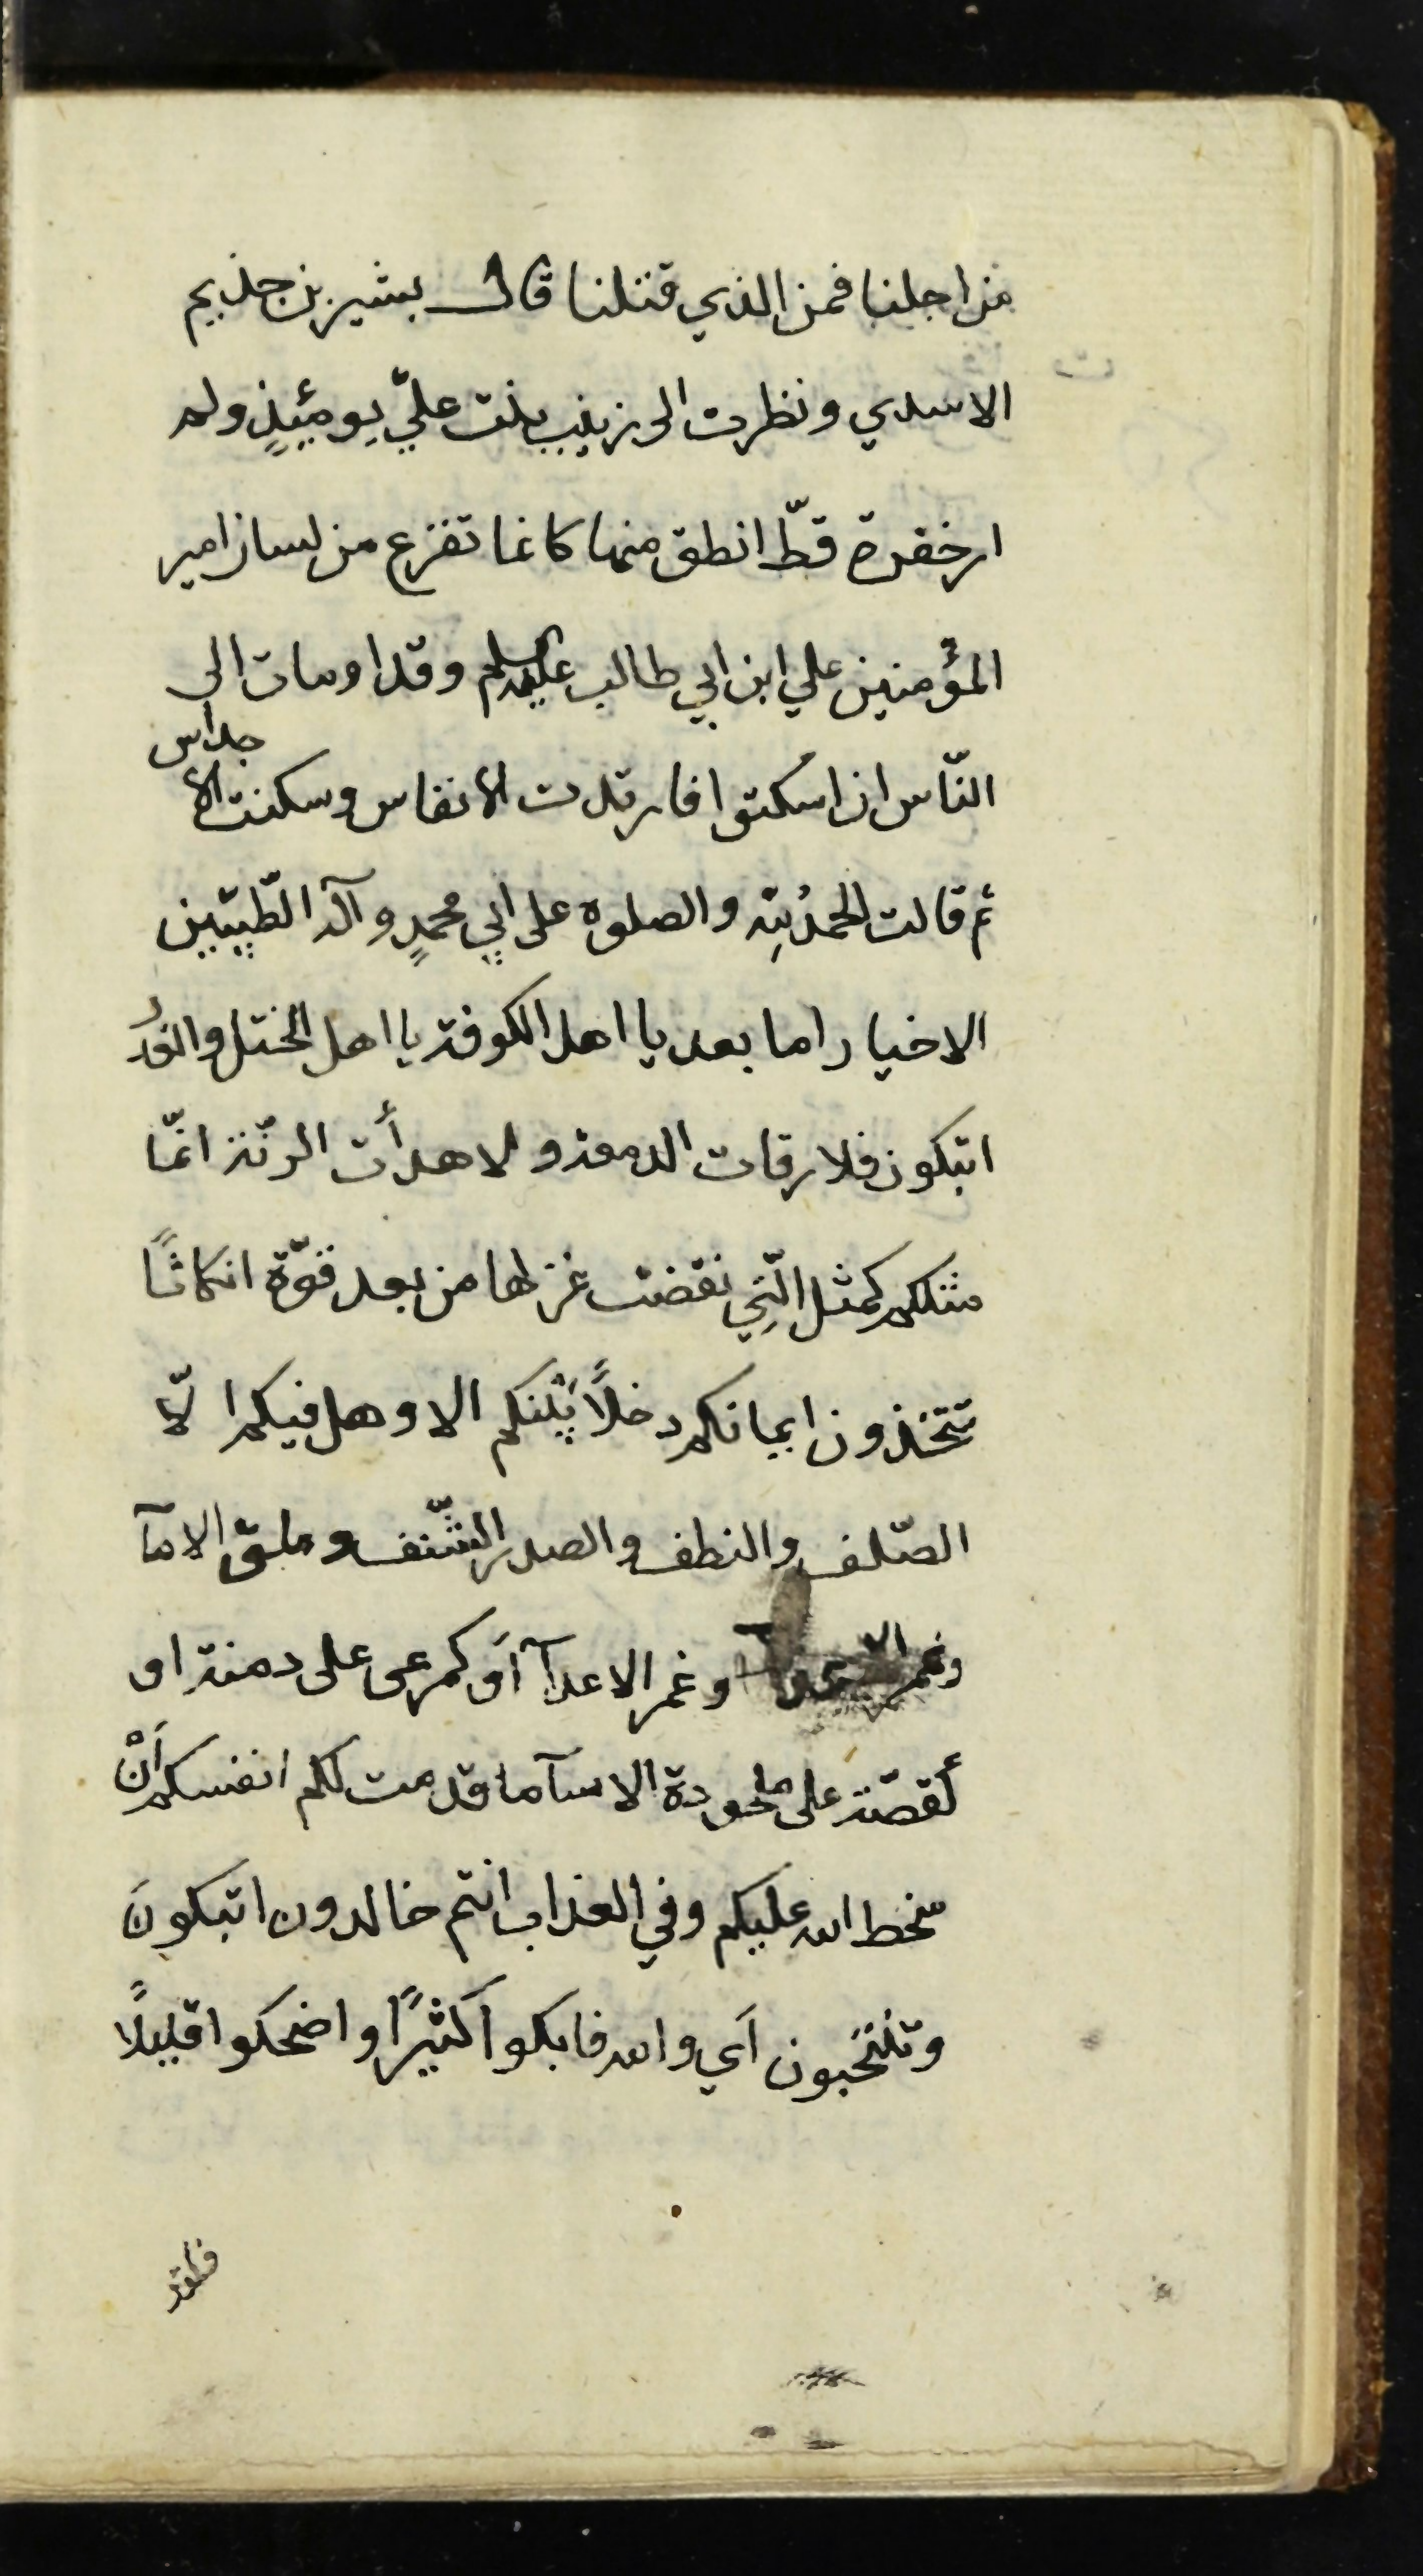 من اجلنا فمن الذي قتلنا قال بشير بن جذيم
الاسدي ونظرت الى زينب بنت عليّ يومئيذٍ ولم
ار خفرة قطّ انطق منها كانما تفزع من لسان امير
المؤمنين علي ابن ابي طالب عليهم السلم وقد اومات الى
النّاس ان اسكتوا فارتدت الانفاس وسكنت الا
جراس
ثم قالت الحمدُ لله والصلوة على ابي محمدٍ وآله الطّيبّين
الاخيار اما بعد يا اهل الكوفة يا اهل الختل والغدر
اتبكون فلا رقات الدمعة ولا هدأت الرنّة انمّا
مثلكم كمثل الّتِي نقضت غزلها من بعد قوّة انكاثًا
تتخذون ايمانكم دخلاً بَيْنكم الا وهل فيكم الّا
الصّلف والنطف والصدر الشّنف وملق الامآ
وغمر وغمر الاعدآ أو كمرعى على دمنة او
كقصّة على ملحودة الا سآ ما قدمت لكم انفسكم اَنْ
سخط الله عليكم وفي العذاب انتم خالدون اتبكونَ
وتنتحبون اَي والله فابكوا كثيرًا واضحكوا قليلًا
فلقد